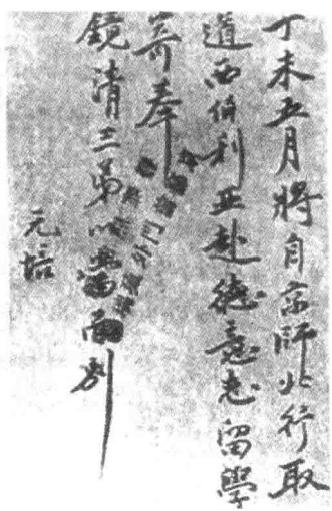 丁未五月將自京師北行取
道西伯利亞赴德意志留學
寄奉
鏡清三弟以當面別
元培